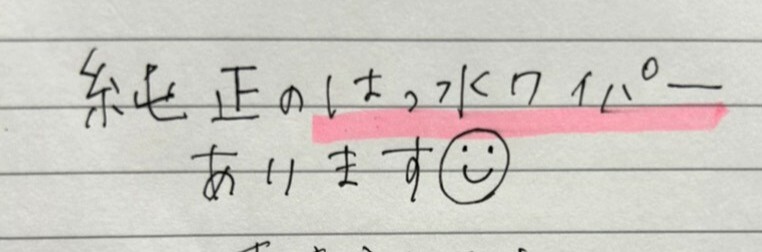 純正のはっ水ワイパー
あります☺